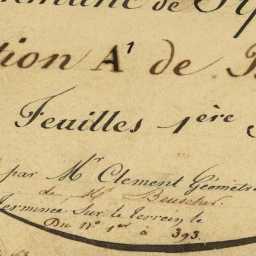 de
tion A¹ de
Feuilles 1ère
par Mr Clement Géomètre
de Mr
Terminée Sur le terrein le
Du No 1er à 393.